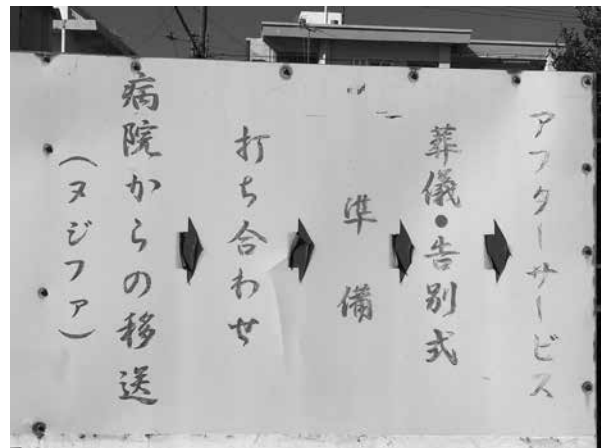 病院からの移送
(ヌジファ)
打ち合わせ
準備
葬儀●告別式
アフターサービス